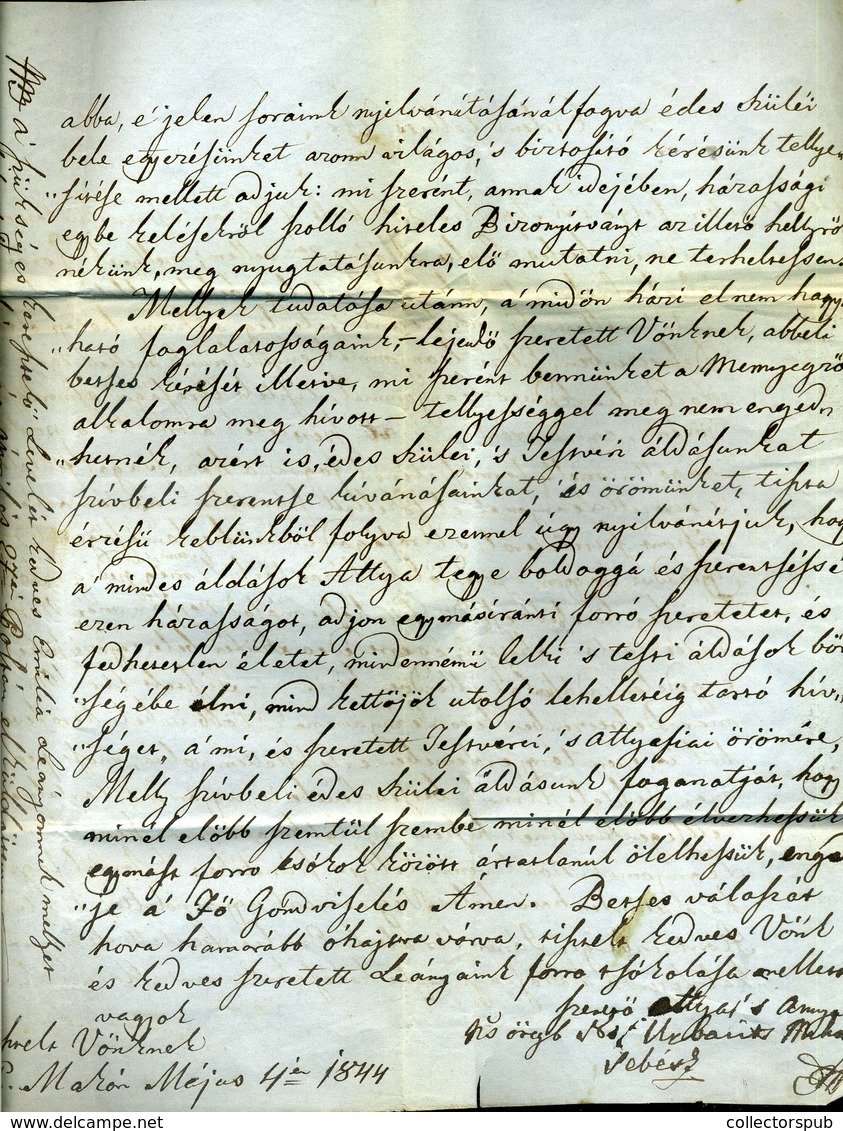 abba, e' jelen soraink nyilvánitásánál fogva édes szüléi
bele egyezésünket azonn világos, 's biztositó kérésünk tellye„
„sitése mellett adjuk: mi szerént, annak idejében, házassági
egybe kelésekröl szolló hiteles Bizonyitványt az illető hellyrő
nékünk, meg nyugtatásunkra, elő mutatni, ne terheltessen.
Mellyek tudatása utánn, a' midőn házi el nem hagy„
„ható foglalatosságaink, – léjendő szeretett Vőnknek, abbeli
betses kérését illetve, mi szerént bennünket a Mennyegző
alkalomra meg hívott – tellyességgel meg nem enged
„hetnék, azért is, édes szülei, 's Testvéri áldásunkat
szívbeli szerentse kívánásainkat, és örömünket, tiszta
érzésű keblünkből folyva ezennel úgy nyilvánítjuk, hog
a' mindes áldások Attya tegye boldoggá és szerentséssé
ezen házasságot, adjon egymásiránti forró szeretetet, és
fedhetetlen életet, mindennémű lelki 's testi áldások bőv
„ségébe élni, mind kettőjök utolsó lehelletéig tartó hív„
„séget, a' mi, és szeretett Testvérei, 's attyafiai örömére,
Melly szívbeli édes szülei áldásunk foganatját, hogy
minél előbb szemtül szembe minél előbb élvezhessük
egymást forro tsókok között ártatlanúl ölelhessük, enge
„je a' Fő Gondviselés Ámen. Betses válaszát
hova hamarább óhajtva várva, tisztelt kedves Vőnk
és kedves szeretett Leányaink forro tsókolása mellett
vagyok
szerető Attya 's Annya
Urbanits
Sebész
Vőnknek
Makón Május 4én 1844
a' szükséges keresztelő Levelét kedves Emilia Leányomnak mellyet
el küldöttem
collectorspub